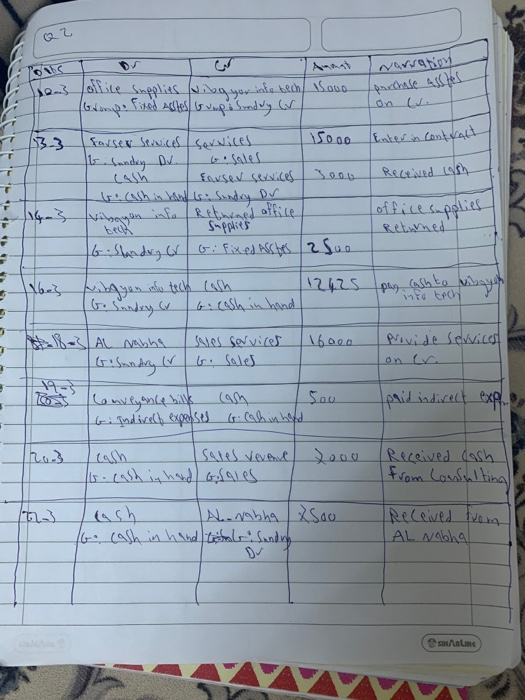 Q2
Date Dr Cr Amant Narration
10-3 office supplies Vibgyor info tech 15000 purchase Asstes
Group: Fixed Asstes Group: Sundry Cr on Cr.
13-3 services 15000 Enter in contract
G: Sundry Dr G: Sales
Cash services 3000 Received cash
G: cash in hand G: Sundry Dr
14-3 info Returned office office supplies
tech supplies Returned
G: Sundry Cr G: Fixed Asstes 2500
16-3 info tech Cash 12425 pay cash to
G: Sundry Cr G: cash in hand info tech
18-3 AL Nabha Sales Services 16000 Provide services
G: Sundry Cr G: Sales on Cr.
19-3
Conveyance bills cash 500 paid indirect exp.
G: Indirect expenses G: Cash in hand
20-3 cash Sales revenue 2000 Received cash
G: cash in hand G: Sales from Consulting
cash AL-Nabha 2500 Received from
G: cash in hand G: Sundry AL Nabha
Dr
SINARLINE